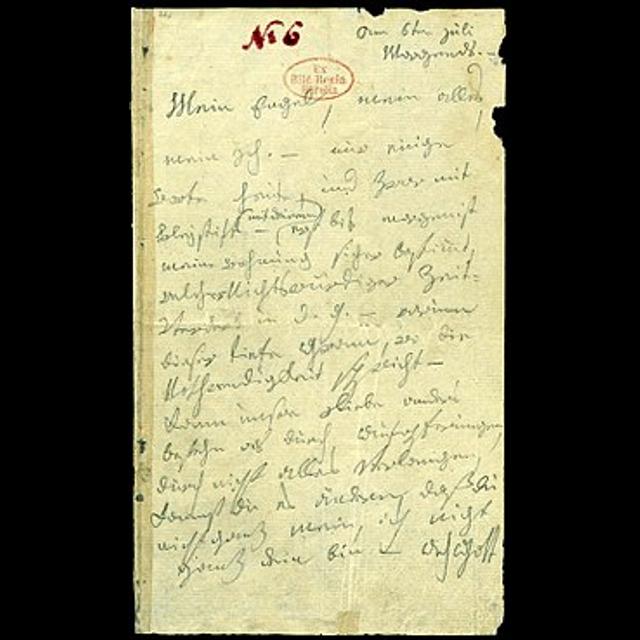 No 6
am 6ten Juli
Morgends. —
Ex
Bibl. Regia
Berolin.
Mein Engel, mein alles
mein Ich. — nur einige
Worte heute, und zwar mit
Bleystift — (mit deinem)
erst bis morgen ist
meine Wohnung sicher bestimmt,
welcher Nichtswürdiger Zeit-
Verderb in d. g. — warum
dieser tiefe Gram, wo die
Nothwendigkeit spricht —
Kann unsre Liebe anders
bestehn als durch Aufopferungen,
durch nicht alles verlangen,
kannst du es ändern, daß du
nicht ganz mein, ich nicht
ganz dein bin — Ach Gott